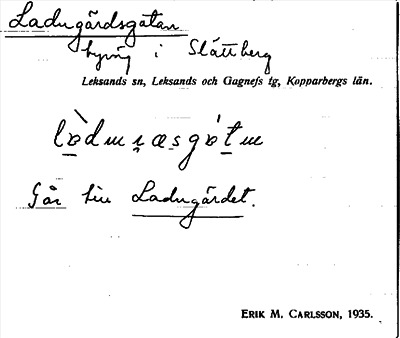 Ladugårdsgatan
i Slättberg
Leksands sn, Leksands och Gagnefs tg, Kopparbergs län.
Går till Ladugårdet.
ERIK M. CARLSSON, 1935.